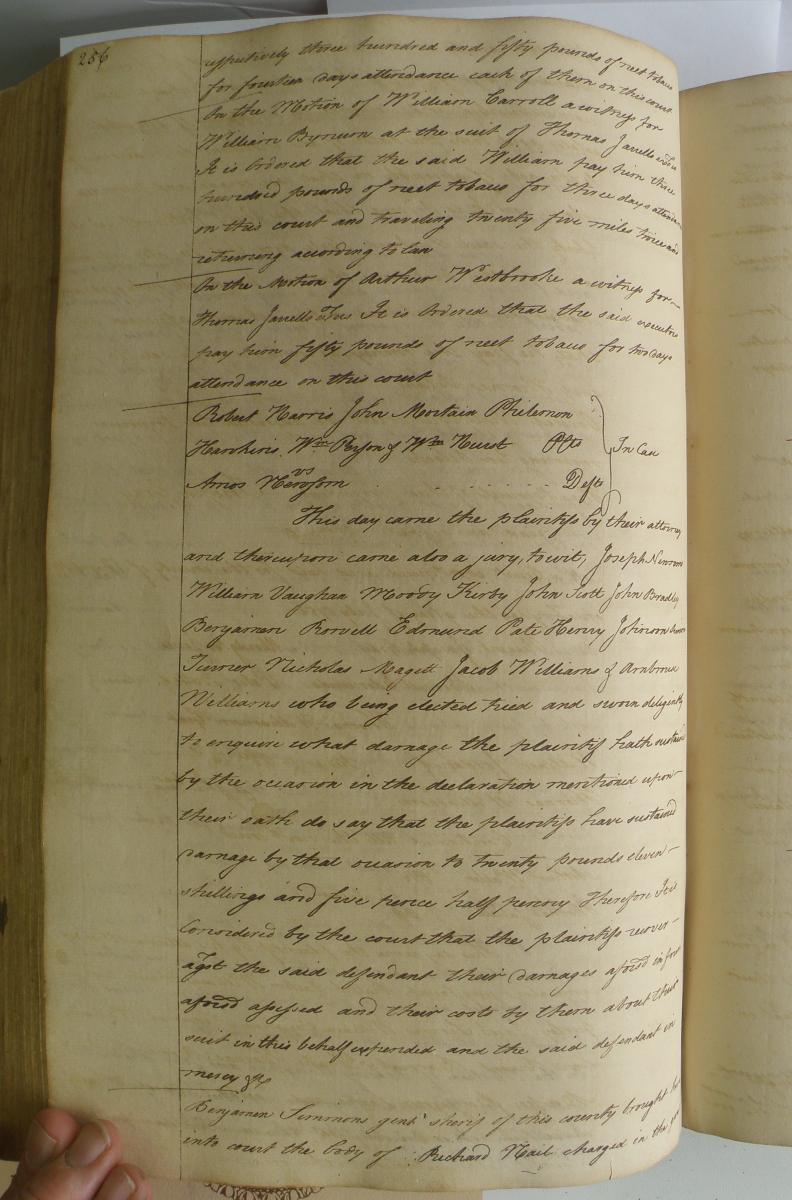 256
respectively three hundred and fifty pounds of neet tobacco
for fourteen days attendance each of them on this court
On the Motion of William Carroll a witness for
William Bynum at the suit of Thomas Jarrells
It is Ordered that the said William pay him three
hundred pounds of neet tobacco for three days
on this court and traveling twenty five miles twice and
returning according to law
On the Motion of Arthur Westbrooke a witness for
Thomas Jarrells Exs It is Ordered that the said executors
pay him fifty pounds of neet tobacco for two days
attendance on this court
Robert Harris John Mortain Philemon
Wm Person & Wm Hurst Plts
In Case
vs
Amos Newsom Deft
This day came the plaintifs by their attorney
and thereupon came also a jury, to wit, Joseph
William Vaughan Moody Kirby John Scott John Bradley
Benjamen Edmund Pate Henry Johnson
Turner Nicholas Magett Jacob Williams &
Williams who being elected tried and sworn diligently
to enquire what damage the plaintifs hath sustained
by the occasion in the declaration mentioned upon
their oath do say that the plaintifs have sustained
damage by that occasion to twenty pounds eleven
shillings and five pence half penny Therefore It is
Considered by the court that the plaintifs recover
agst the said defendant their damages aforesd in form
aforesd assessed and their costs by them about their
suit in this behalf expended and the said defendant in
mercy &c
Benjamen Simmons gent sherif of this county brought
into court the body of Richard Nail charged in the